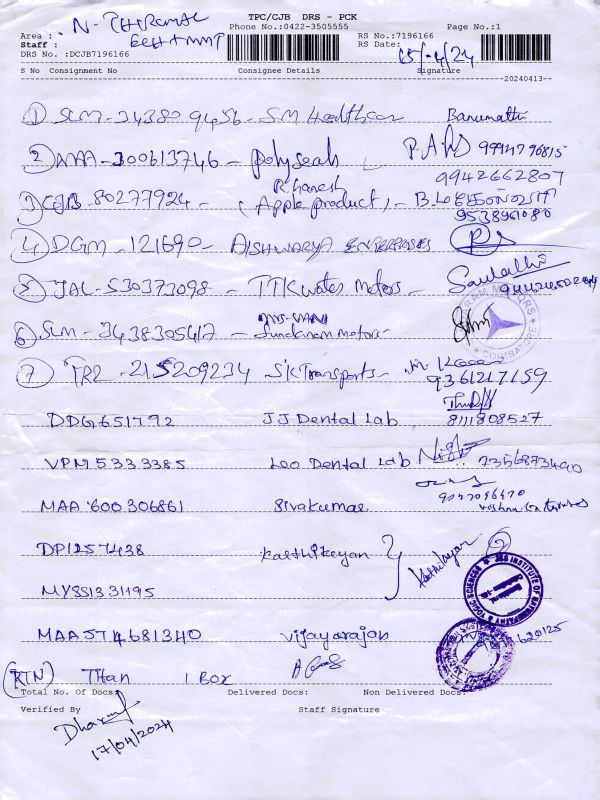 TPC/CJB DRS - PCK
Phone No.:0422-3505555 Page No.:1
Area : N-THIRUMAL
Staff :
RS No.:7196166
RS Date: 15/4/24
DRS No. :DCJB7196166
S No Consignment No Consignee Details Signature
20240413
1 SLM - 343809456 - SM Healthcare Banumathi
2 MAA - 300613746 - polyseals 9994796815
9942662807
R. Ganesh
3 CJB - 80277924 - (Apple product) -
9538961080
4 DGM - 121690 - AISHWARYA ENTERPRISES
5 JAL - 530373098 - TTK water Motors -
6 SLM - 3438305417 - Sundaram motors -
COIMBATORE
7 TRZ - 215209234 SK Transports -
9361217159
DDG651792 JJ Dental Lab 8111808527
VPM5333385 Leo Dental Lab
MAA 600306861 Sivakumar
DPI257438 Karthikeyan Karthikeyan
MYSS1331195
INSTITUTE OF NATUROPATHY & YOGIC SCIENCES
MAA574681340 Vijayarajan 620125
(RTN) Titan 1 Box
Total No. Of Docs: Delivered Docs: Non Delivered Docs:
Verified By Staff Signature
17/04/2024